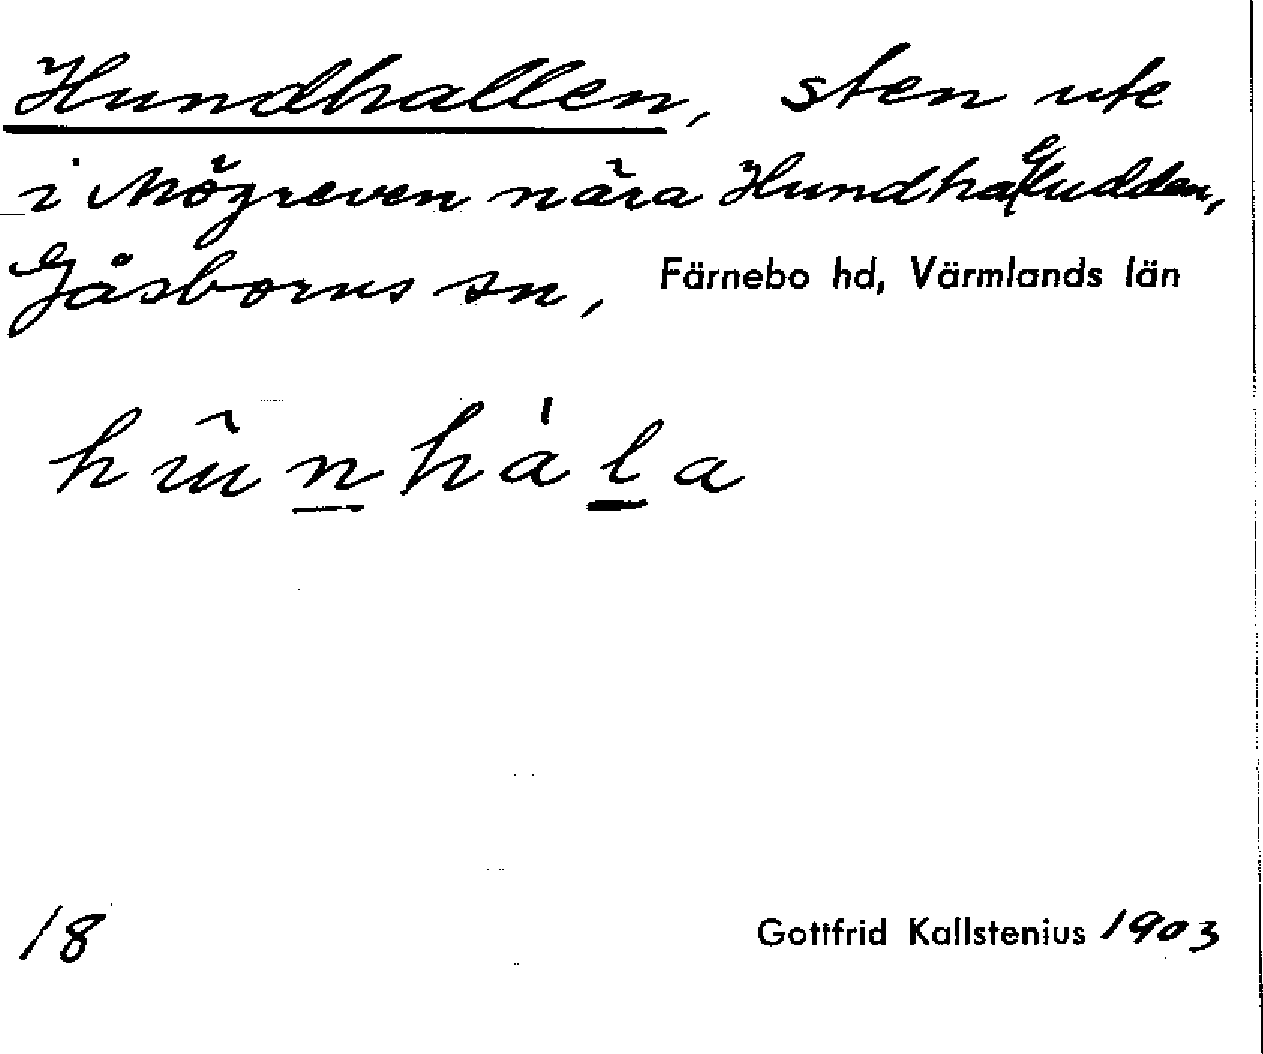 Hundhallen, sten ute
i Mögreven nära Hundhalludden,
Gåsborns sn, Färnebo hd, Värmlands län
hûn̲hàl̲a
18 Gottfrid Kallstenius 1903